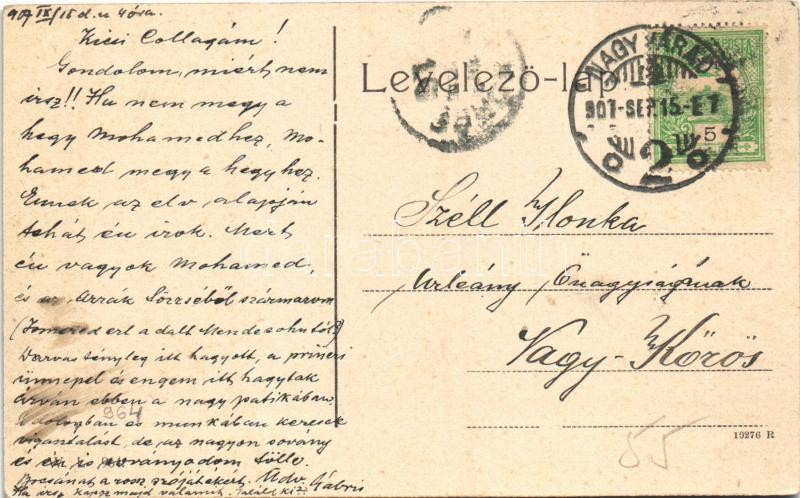 907 IX/15 d.u. 4 óra.
Kicsi Collagám!
Gondolom, miért nem
irsz!! Ha nem megy a
hegy Mohamedhez, Mo-
hamed megy a hegyhez.
Ennek az elv alapján
tehát én irok. Mert
én vagyok Mohamed,
és az Azrák törzséből származom
(Ismered ezt a dalt Mendelsohntól?)
Darvas tényleg itt hagyott, a
ünnepel és engem itt hagytak
árván ebben a nagy patikában.
A dologban és munkában keresek
vigasztalást, de az nagyon sovány
és én is soványodom tőlle.
Bocsánat a rossz szójátékért. Üdv. Gábris
Ha irsz kapsz majd valamit. Találd ki?
964
Levelező-lap
NAGYVÁRAD
907-SEP.15-E7
2
5
Széll Ilonka
Urleány Önagyságának
Nagy-Kőrös
55
19276 R